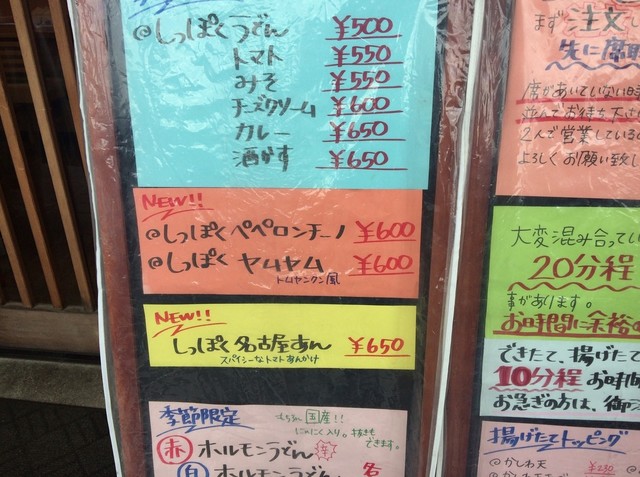 @しっぽくうどん ¥500
トマト ¥550
みそ ¥550
チーズクリーム ¥600
カレー ¥650
酒かす ¥650
NEW!!
@しっぽくペペロンチーノ ¥600
@しっぽく ヤムヤム ¥600
トムヤンクン風
NEW!!
しっぽく名古屋あん ¥650
スパイシーなトマトあんかけ
季節限定
もちろん国産!!
にんにく入り。抜きも
できます。
赤 ホルモンうどん 辛
白 ホルモンうどん 各
まず注文
先に席
席があいていない時
並んでお待ち下さ
2人で営業している
よろしくお願い致し
大変混み合ってい
20分程
事があります。
お時間に余裕
できたて、揚げたて
10分程 お時間
お急ぎの方は、御
揚げたてトッピング
@かしわ天 ¥230